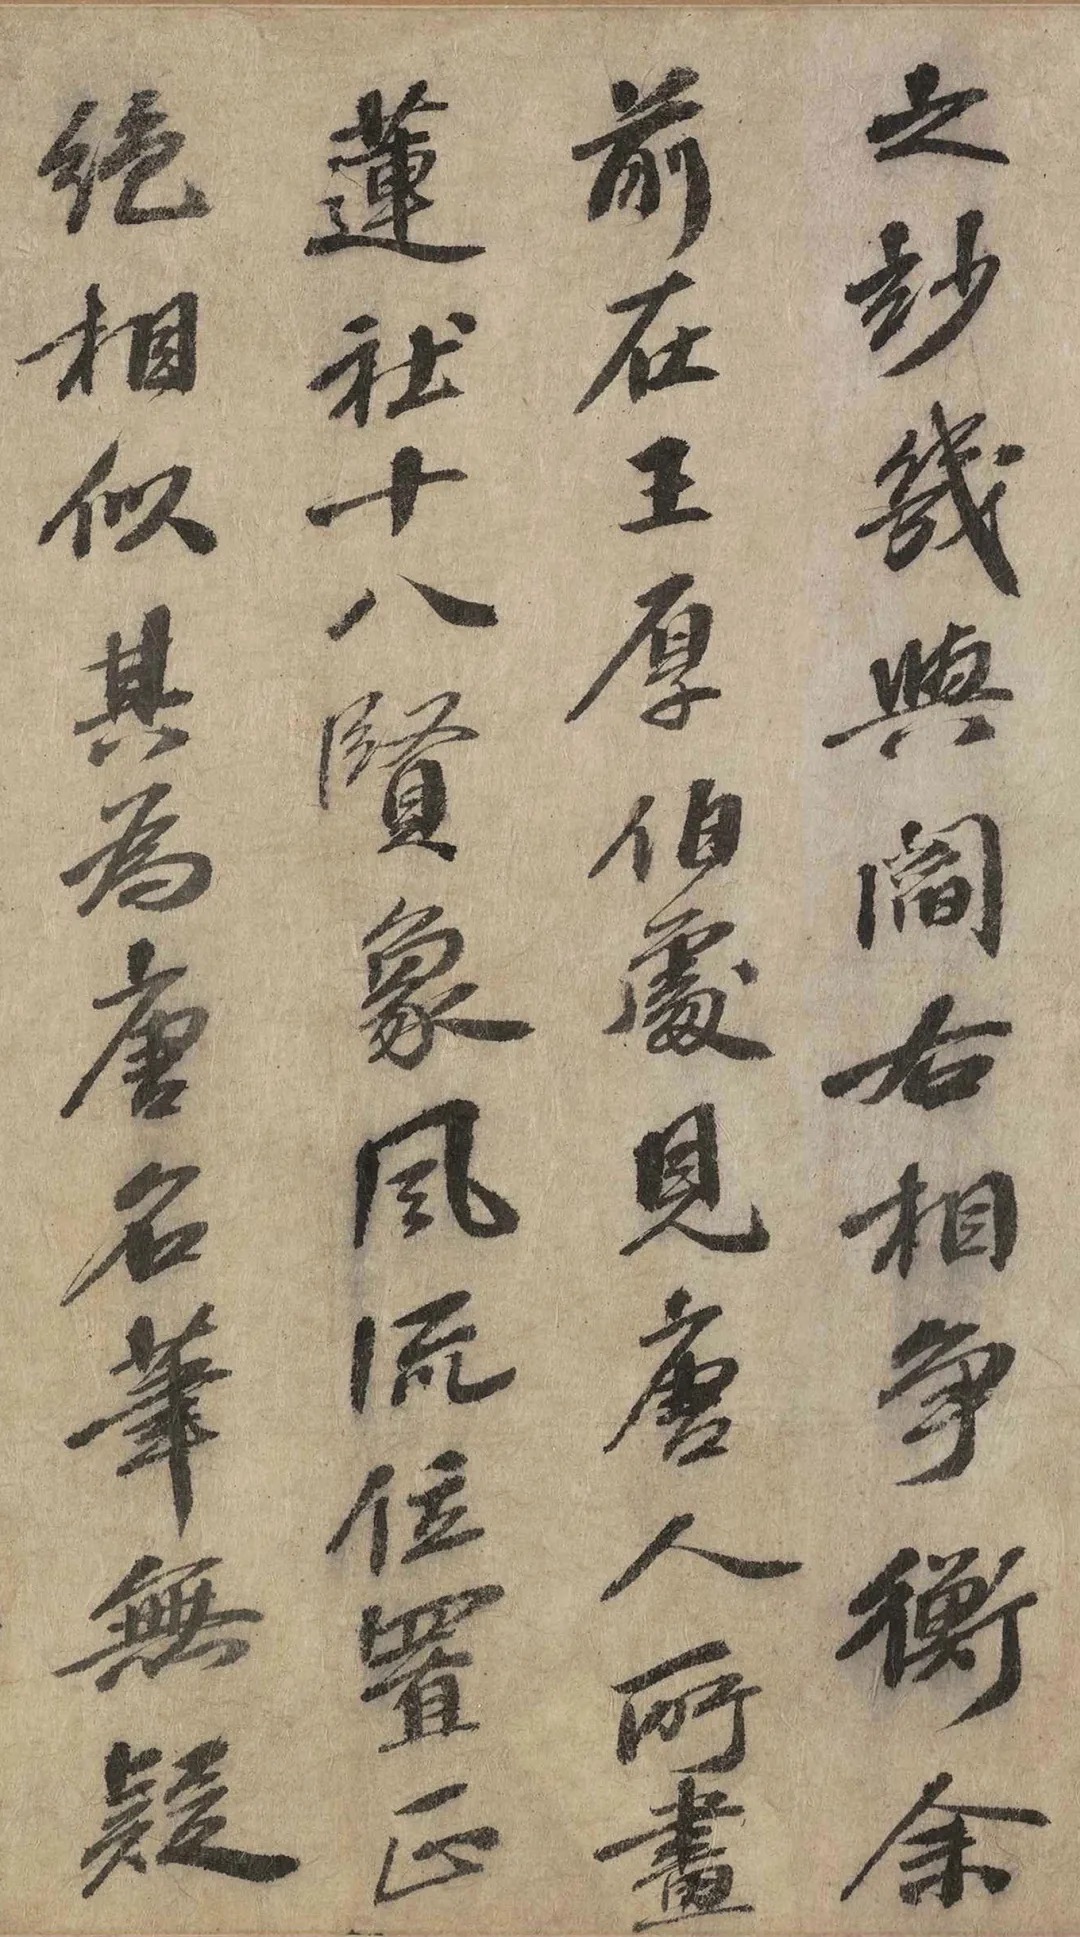 之妙幾與閻右相爭衡余
前在王厚伯處見唐人所畫
蓮社十八賢象風流位置正
絕相似其為唐名筆無疑